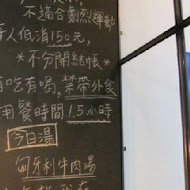 不適合劇烈運動
人低消150元,
*不分開結帳*
有吃有喝,禁帶外食
用餐時間1.5小時
今日湯
匈牙利牛肉湯